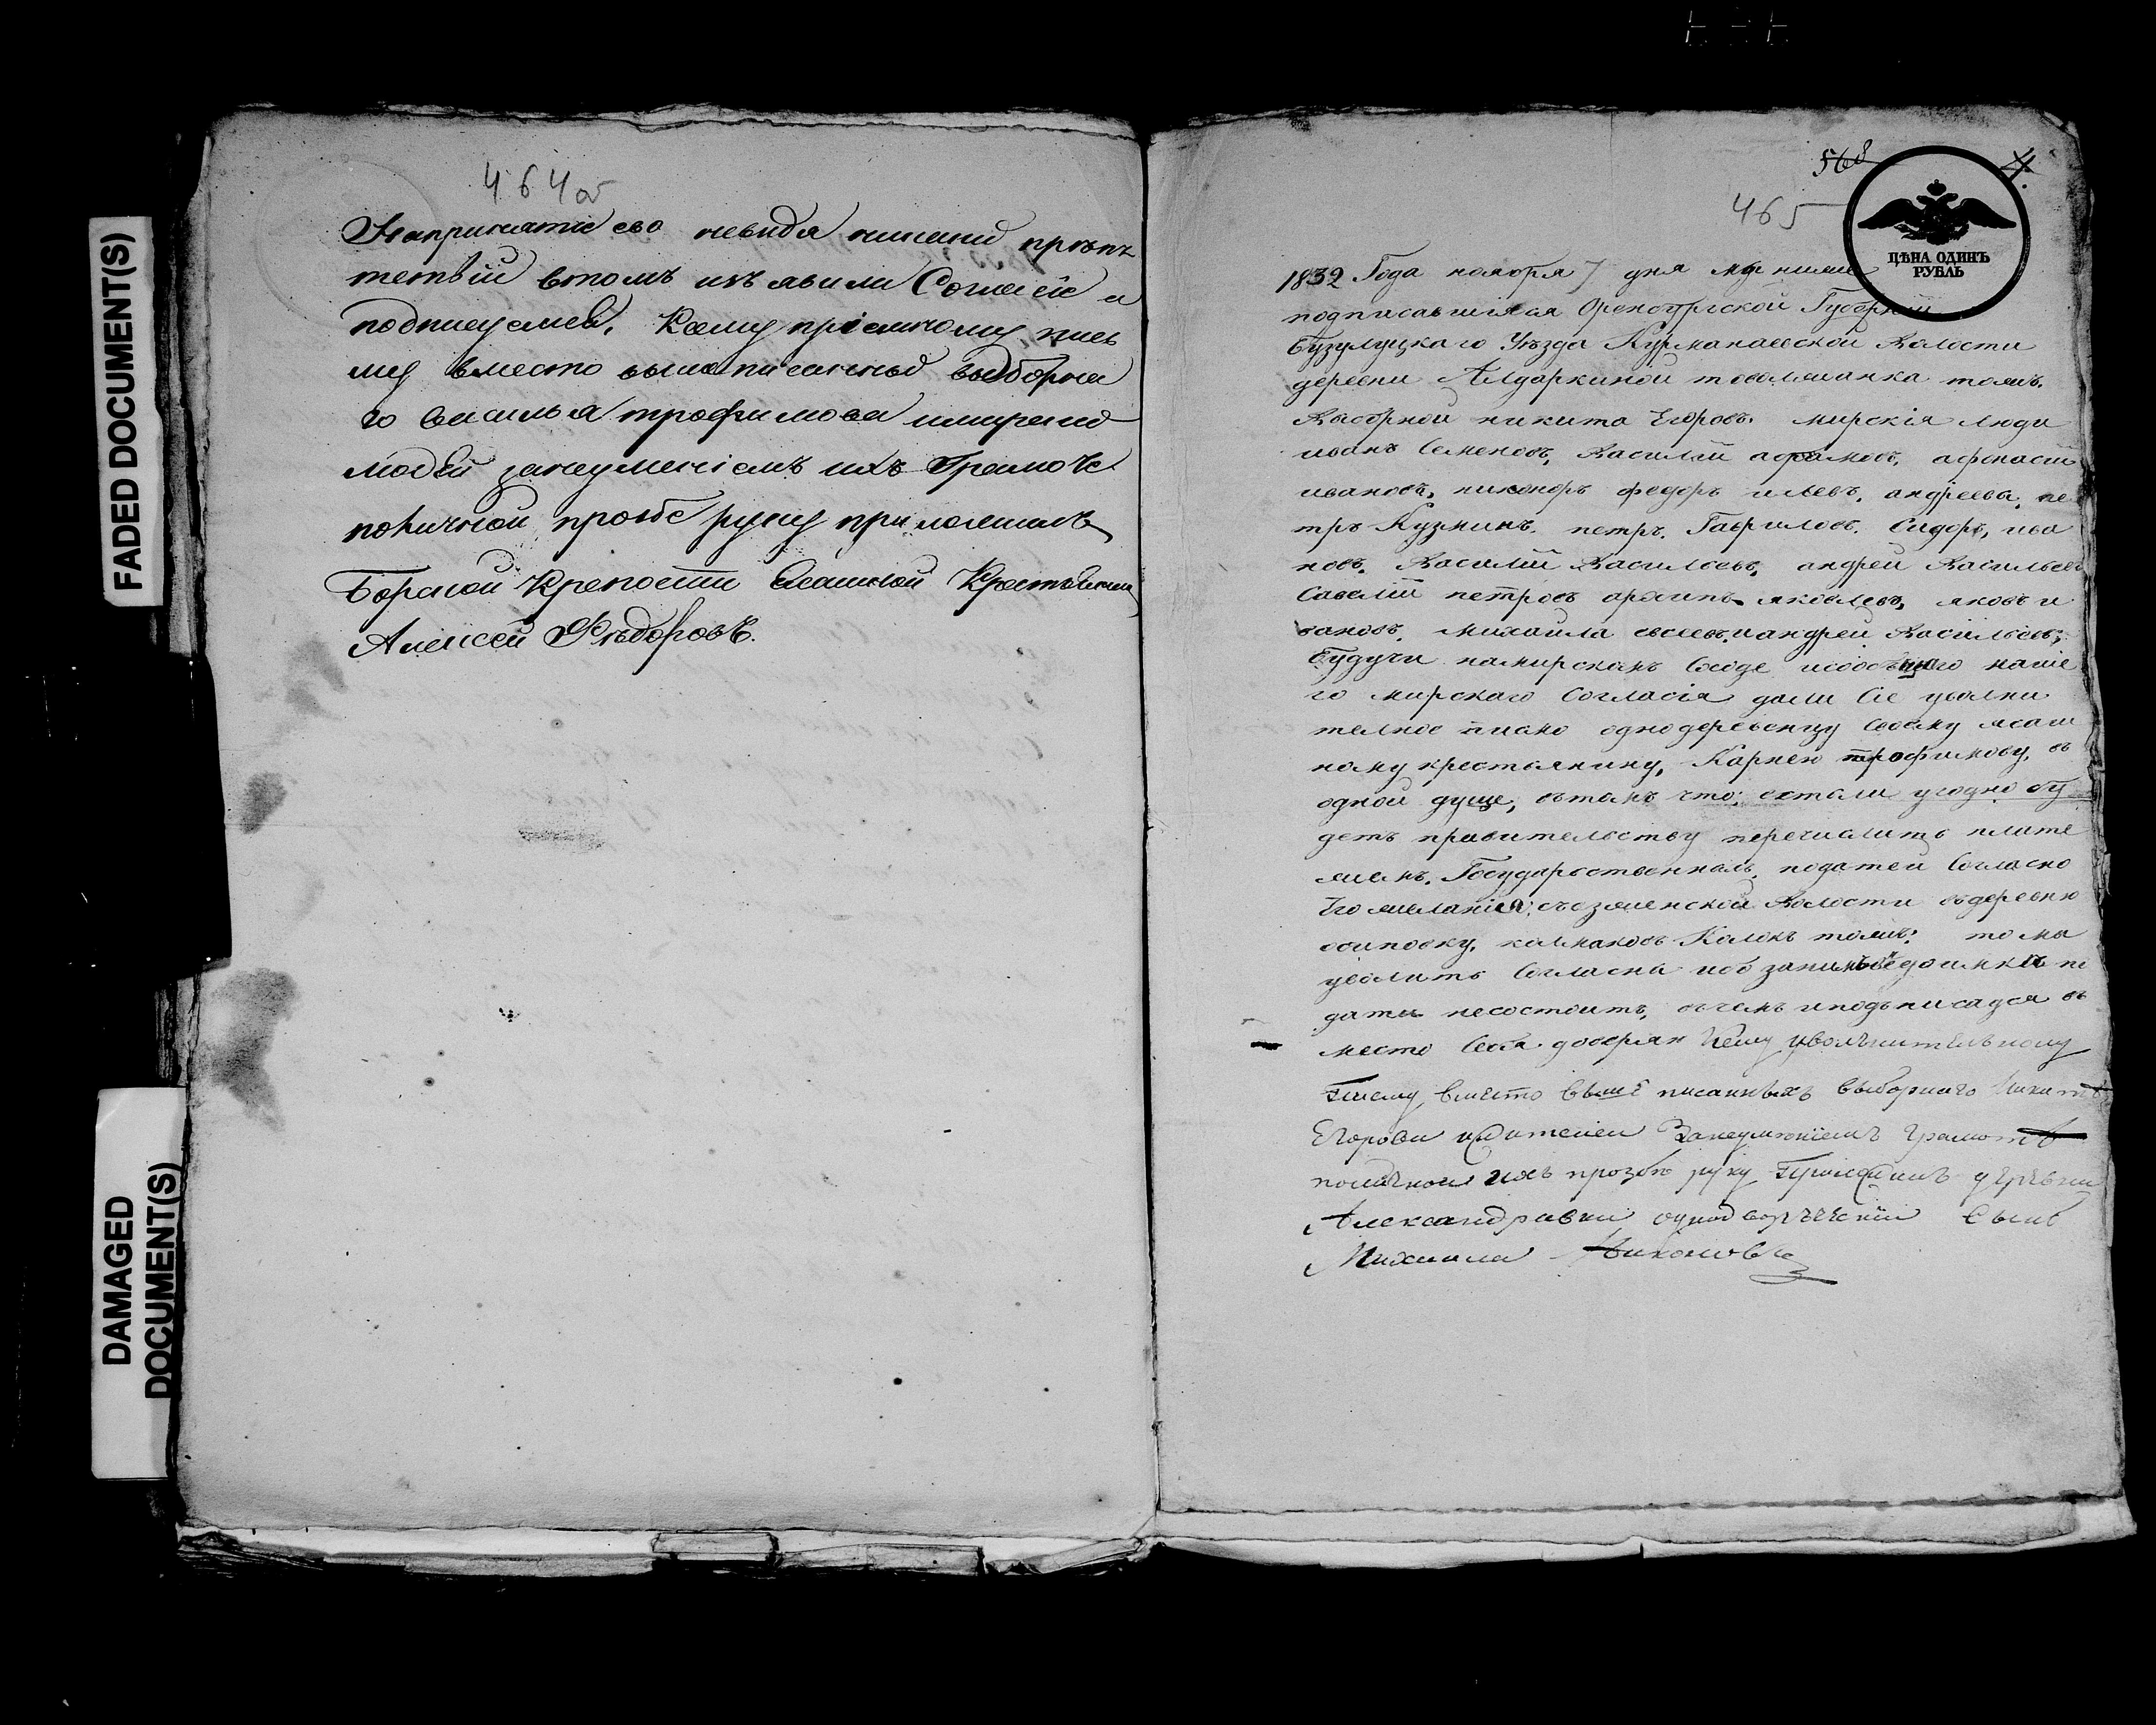 FADED DOCUMENT(S)
DAMAGED
DOCUMENT(S)
464об
Напринятие ево невидя никаких препя
тетвии втомъ изъявили Согласіе и
подписуемся. К сему пріемному пись
му вместо вышеписанныхъ выборна
го василья трофимова имирских
людей занеуменіемъ ихъ Грамоте
поличной прозбе руку приложилъ
Борской Крепости Ясашной Крестьянин
Алексей Фѣдоровъ.
568
4.
465
ЦѢНА ОДИНЪ
РУБЛЬ
1832 Года ноября 7 дня мы ниже
подписавшияся Оренбургской Губернии
Бузулуцкаго Уѣзда Курманаевской Волости
деревни Алдаркиной товолжанка тожъ.
Выборной никита Егоровъ. мирскія люди
иванъ Семеновъ, Василий абрамовъ, афонасий
ивановъ, никоноръ федоръ ильевъ, андреева, пе
тръ Кузминъ. петръ. Гавриловъ. Сидоръ, ива
новъ. Василий Васильевъ, андрей Васильевъ
Савелий петровъ архипъ яковлевъ, яковъ и
вановъ. михайла евсеевъ, иандрей Васильевъ;
будучи намирскомъ Сходе изобщаго наше
го мирскаго Согласія дали Сіе уволни
телное писмо однодеревенцу Своему ясаш
ному крестьянину, Карнею трофимову, въ
одной душе, втомъ что; ежели угодно бу
детъ правительству перечислить плате
жемъ. Государственныхъ. податей Согласно
Его желания; съезженской Волости въдеревню
осиповку, калмаковъ Колокъ тожъ; то мы
уволить Согласны ибо занимъ недоимки по
дати несостоитъ, вчемъ иподписался в
место Себя доверяя К сему увольнительному
писму вместо выше писанныхъ выборнаго Никиты
Егорова ижителей Занеумениемъ Грамоте
поличной ихъ прозбе руку приложилъ деревни
Александравки однодворческий Сынъ
Михаила